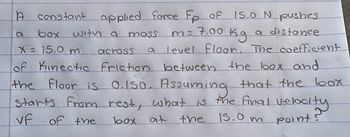 A constant applied force Fp of 15.0 N pushes
a box with a mass m = 7.00 Kg a distance
x = 15.0 m across a level floor. The coefficient
of Kinectic friction between the box and
the floor is 0.150. Assuming that the box
starts from rest, what is the final velocity
vf of the box at the 15.0 m point?